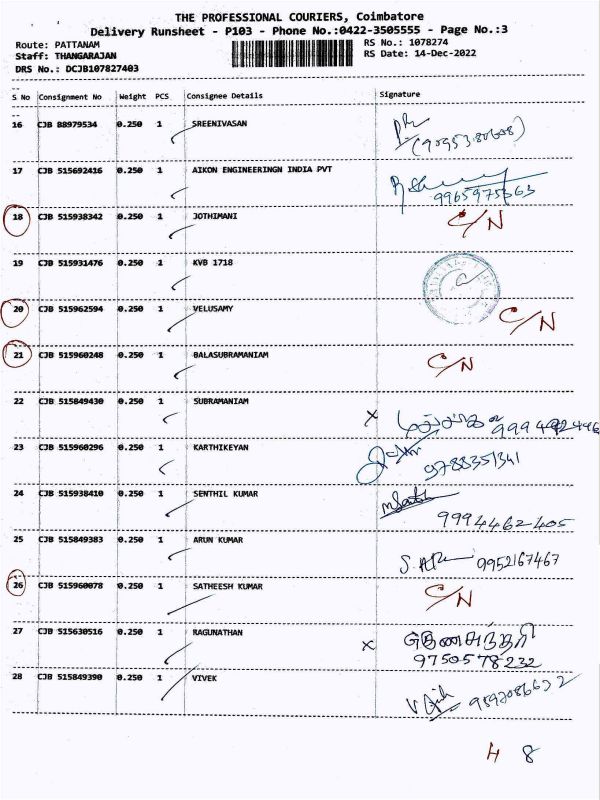 THE PROFESSIONAL COURIERS, Coimbatore
Delivery Runsheet - P103 - Phone No.:0422-3505555 - Page No.:3
Route: PATTANAM
RS No.: 1078274
Staff: THANGARAJAN
RS Date: 14-Dec-2022
DRS No.: DCJB107827403
S No Consignment No Weight PCS Consignee Details Signature
16 CJB 88979534 0.250 1 SREENIVASAN
17 CJB 515692416 0.250 1 AIKON ENGINEERINGN INDIA PVT
9965975363
18 CJB 515938342 0.250 1 JOTHIMANI C/N
19 CJB 515931476 0.250 1 KVB 1718
20 CJB 515962594 0.250 1 VELUSAMY C/N
21 CJB 515960248 0.250 1 BALASUBRAMANIAM C/N
22 CJB 515849430 0.250 1 SUBRAMANIAM X
23 CJB 515960296 0.250 1 KARTHIKEYAN 9788351341
24 CJB 515938410 0.250 1 SENTHIL KUMAR
9994462405
25 CJB 515849383 0.250 1 ARUN KUMAR 9952167467
26 CJB 515960078 0.250 1 SATHEESH KUMAR C/N
27 CJB 515630516 0.250 1 RAGUNATHAN X
9750578232
28 CJB 515849390 0.250 1 VIVEK
H 8